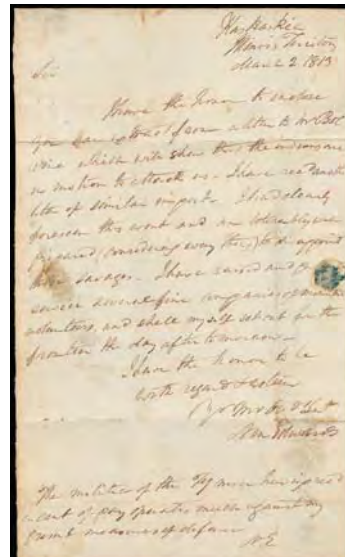 Kaskaskia
Illinois Territory
March 2 1813
Sir
I have the honor to enclose
you an extract from a letter to
which will show that the Indians are
in motion to attack us. I have read another
letter of similar import. I had clearly
foreseen this event and am
prepared (considering every thing) to disappoint
these savages. I have raised and in
service several fine companies of
volunteers, and shall myself set out for the
frontier the day after tomorrow.
I have the honor to be
with regard & esteem
yr Mo ob St
Nin Edwards
The notice of the
of pay operates much against my
present measures of defence
NE